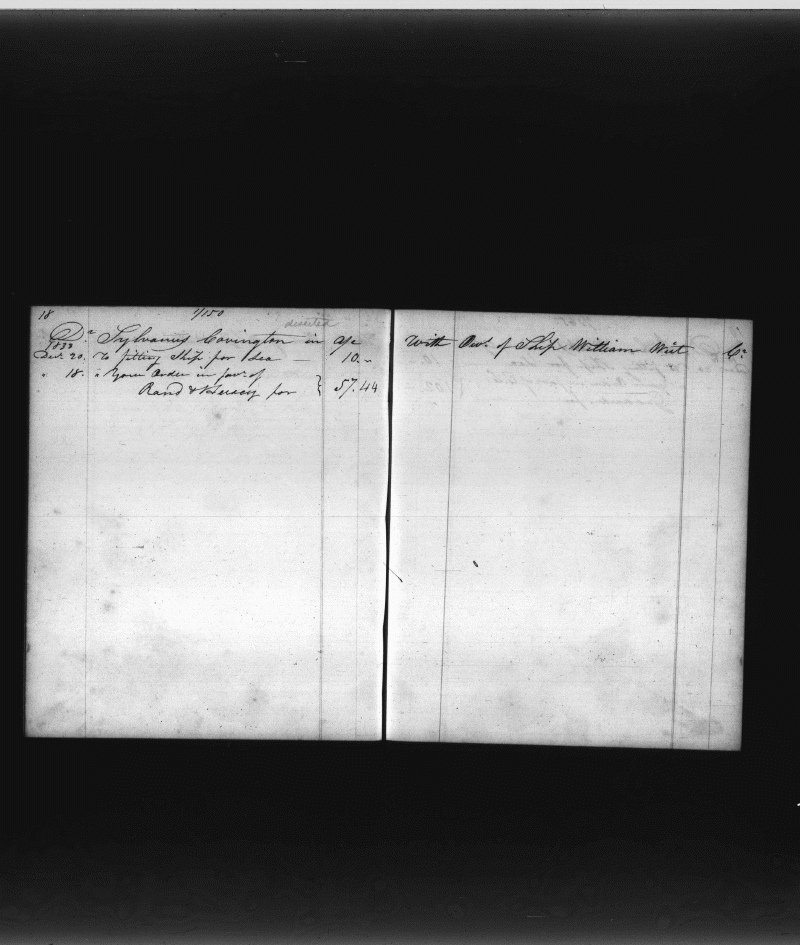 18
1/150
deserted
Dr Sylvanus Covington in a/c
1833
Decr. 20. To fitting Ship for Sea — 10.-
" 18. " Your Order in favr. of
Rand & Hersey for } 57.44
With Owrs. of Ship William Wirt Cr